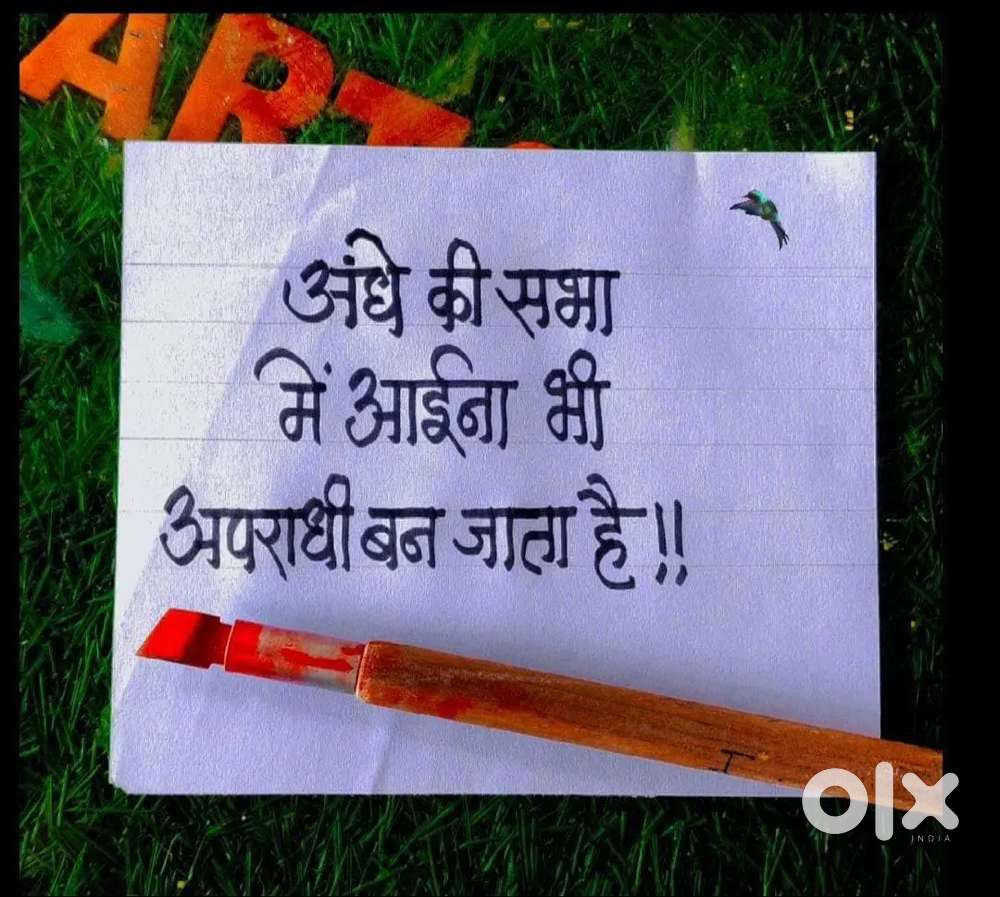 ART
अंधे की सभा
में आईना भी
अपराधी बन जाता है !!
I
olx
INDIA